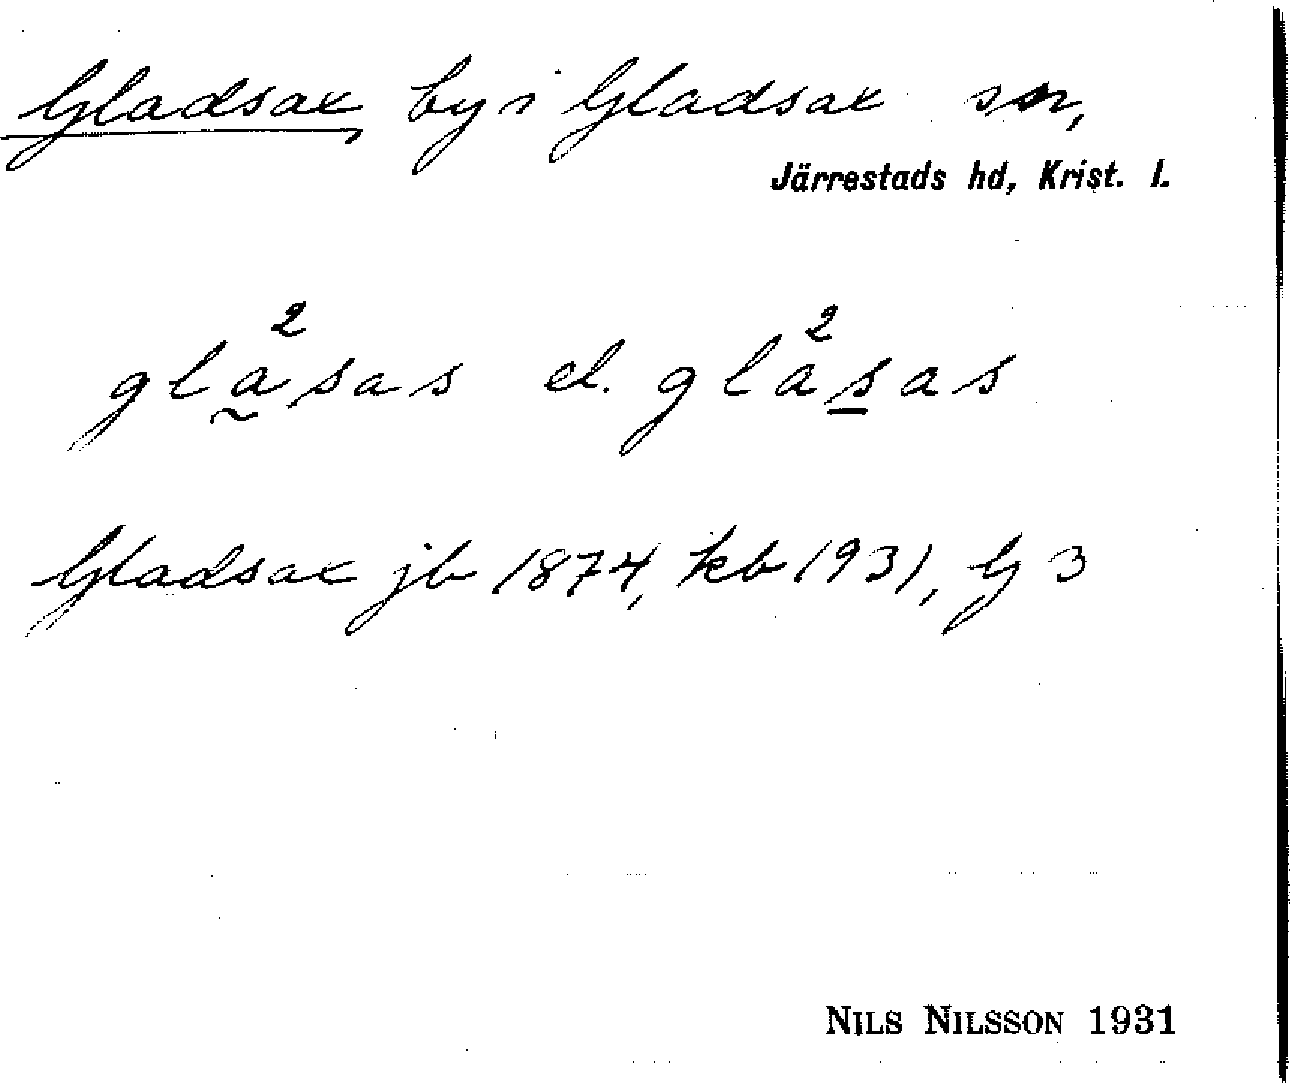 Gladsax, by i Gladsax sn,
Järrestads hd, Krist. l.
gla̰²sas el. gla²s̲as
Gladsax jb 1874, kb 1931, G 3
NILS NILSSON 1931